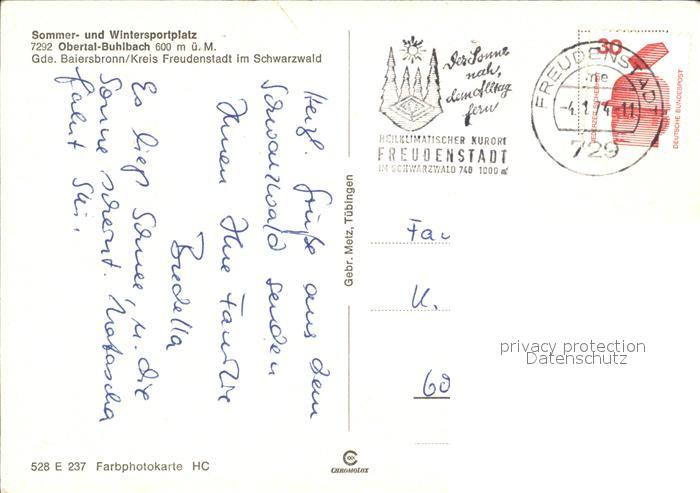 Sommer- und Wintersportplatz
7292 Obertal-Buhlbach 600 m ü. M.
Gde. Baiersbronn/Kreis Freudenstadt im Schwarzwald
Herzl. Grüße aus dem
Schwarzwald senden
Ihnen Ihre Familie
Budella
Es liegt Schnee, u. die
Sonne scheint. Natascha
fährt Ski.
528 E 237 Farbphotokarte HC
Gebr. Metz, Tübingen
CHROMOLUX
Der Sonne
nah,
dem Alltag
fern
HEILKLIMATISCHER KURORT
FREUDENSTADT
IM SCHWARZWALD 740 1000 m
FREUDENSTADT
-4.1.74-11
729
30
DEUTSCHE BUNDESPOST
Fa
K.
60
privacy protection
Datenschutz